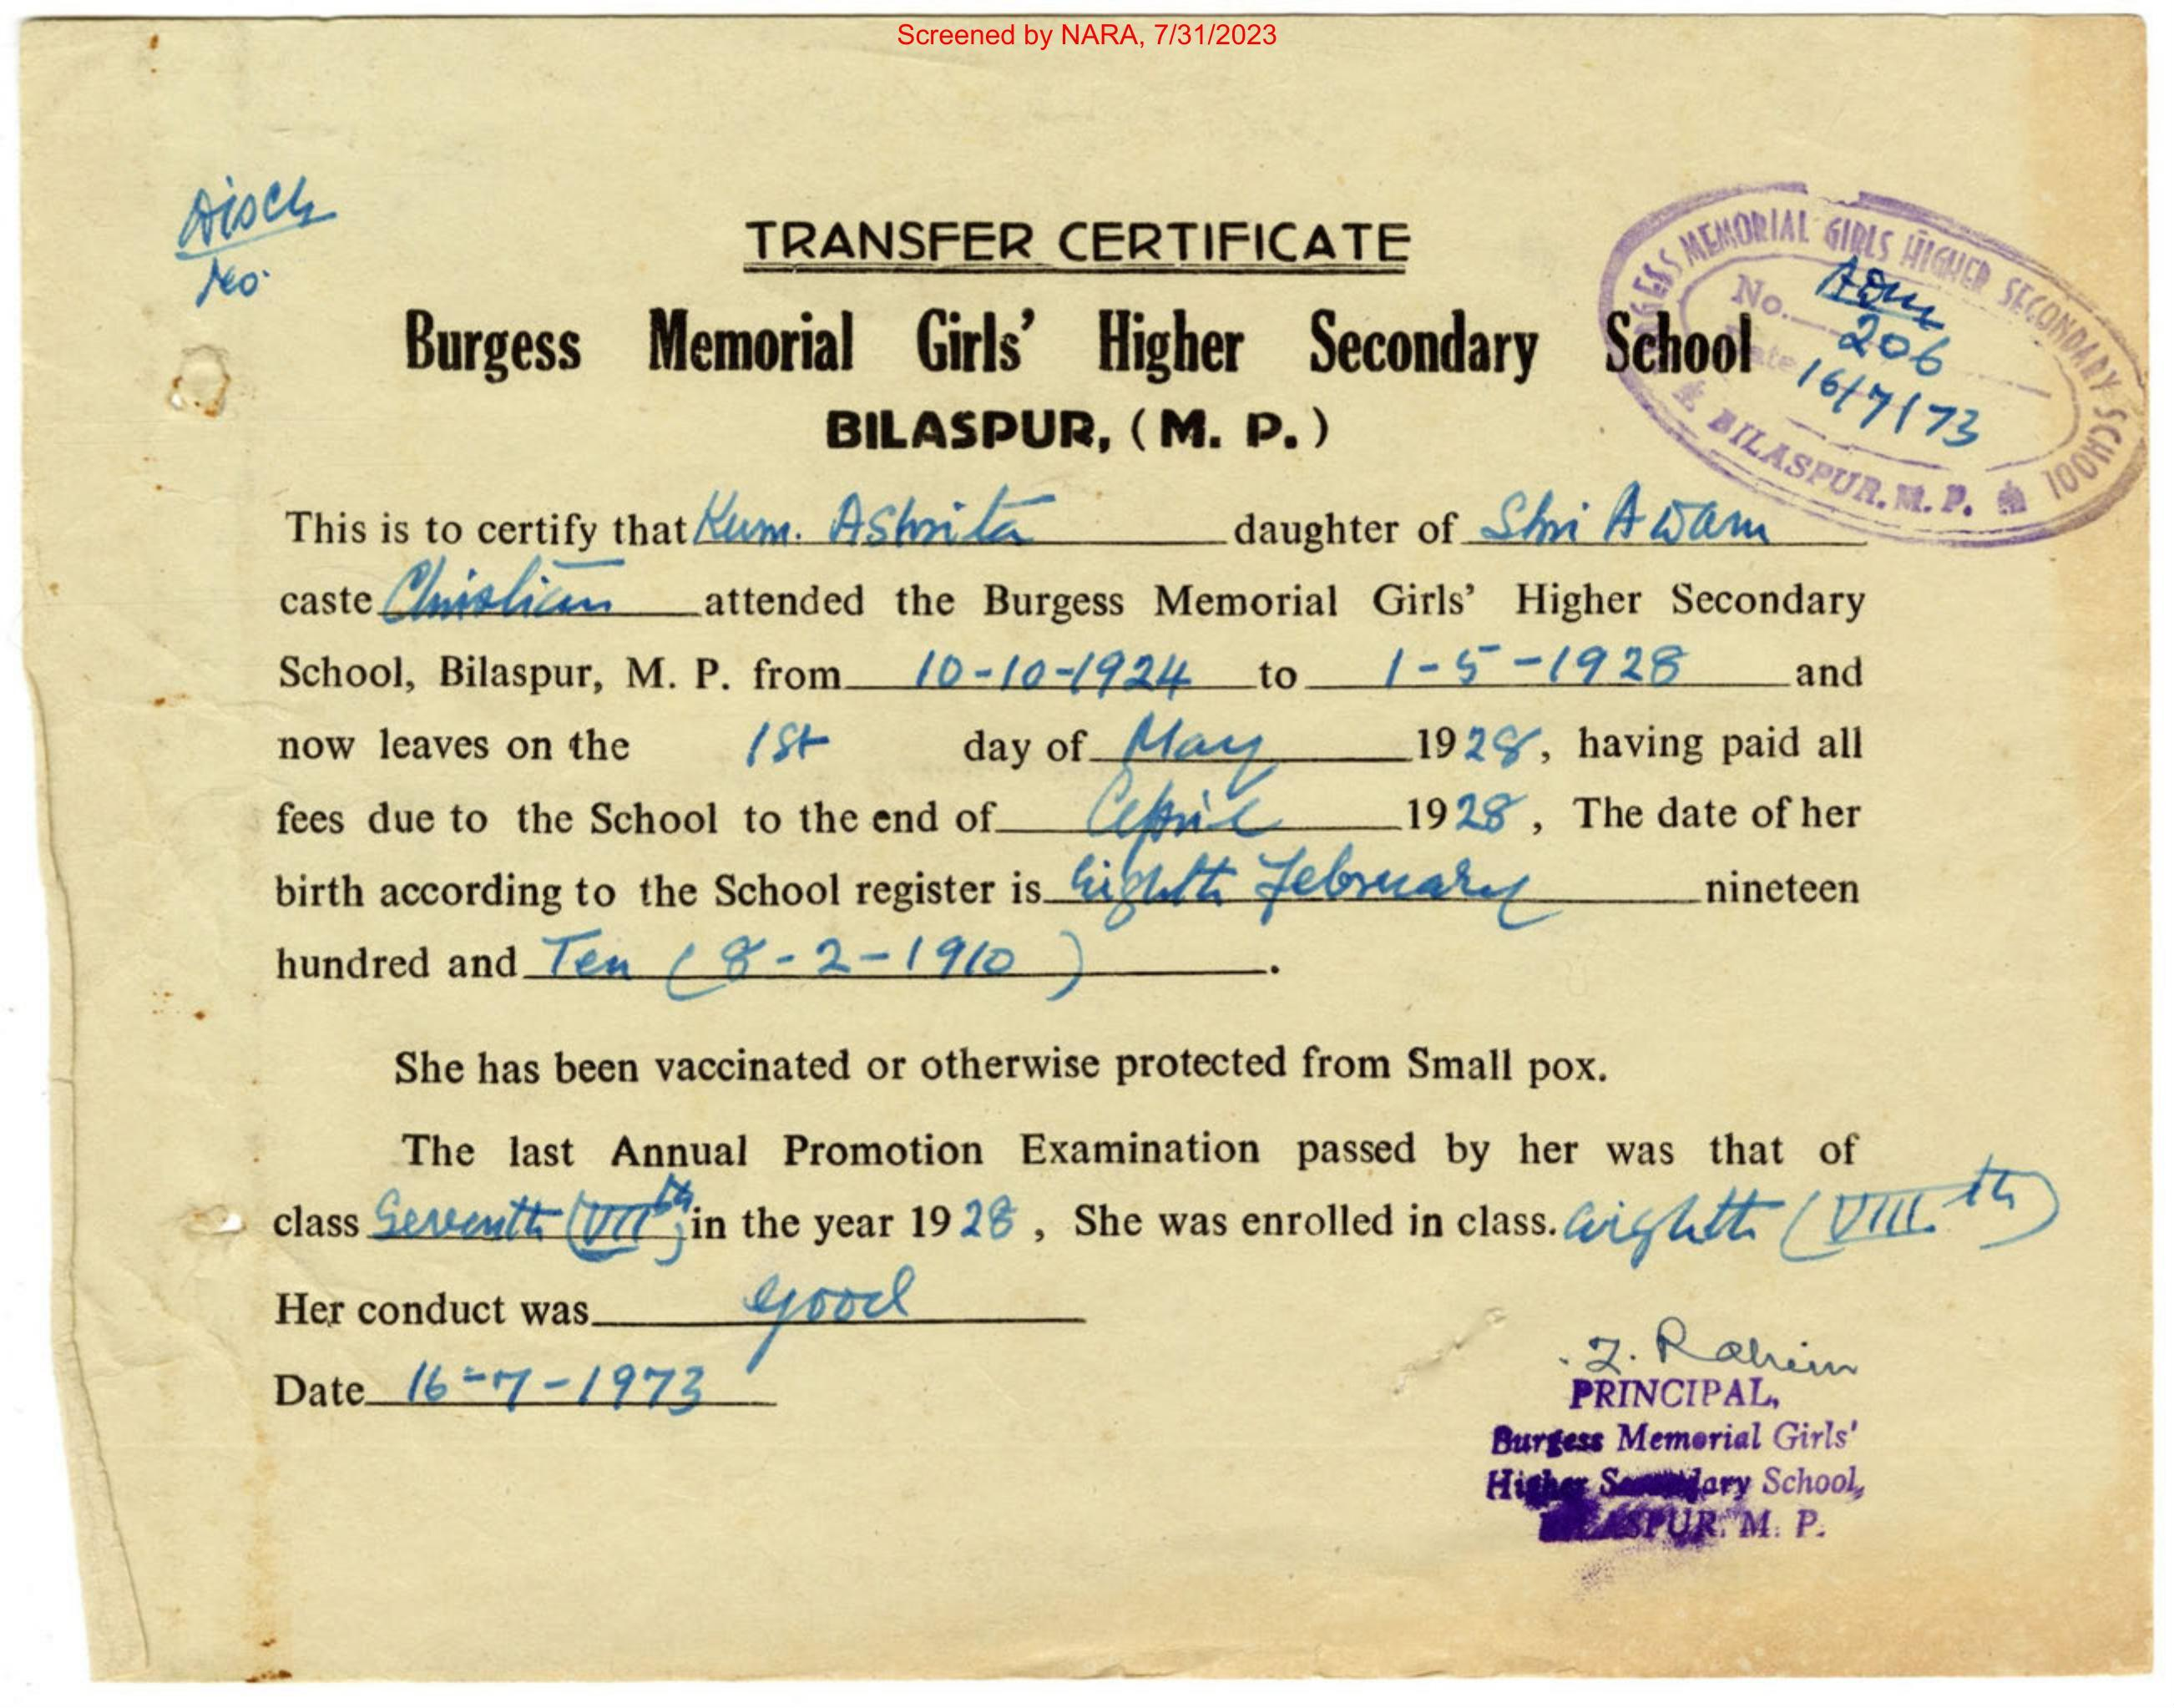 Screened by NARA, 7/31/2023
Disch
No.
TRANSFER CERTIFICATE
BURGESS MEMORIAL GIRLS HIGHER SECONDARY SCHOOL
BILASPUR. M. P.
No. Adm
206
Date 16/7/73
Burgess Memorial Girls' Higher Secondary School
BILASPUR, ( M. P. )
This is to certify that Kum. Ashrita daughter of Shri Awam
caste Christian attended the Burgess Memorial Girls' Higher Secondary
School, Bilaspur, M. P. from 10-10-1924 to 1-5-1928 and
now leaves on the 1st day of May 1928, having paid all
fees due to the School to the end of April 1928, The date of her
birth according to the School register is Eighth February nineteen
hundred and Ten (8-2-1910).
She has been vaccinated or otherwise protected from Small pox.
The last Annual Promotion Examination passed by her was that of
class Seventh (VIIth) in the year 1928, She was enrolled in class. Eighth (VIII.th)
Her conduct was good
Date 16-7-1973
Rahim
PRINCIPAL,
Burgess Memorial Girls'
Higher Secondary School,
BILASPUR. M. P.